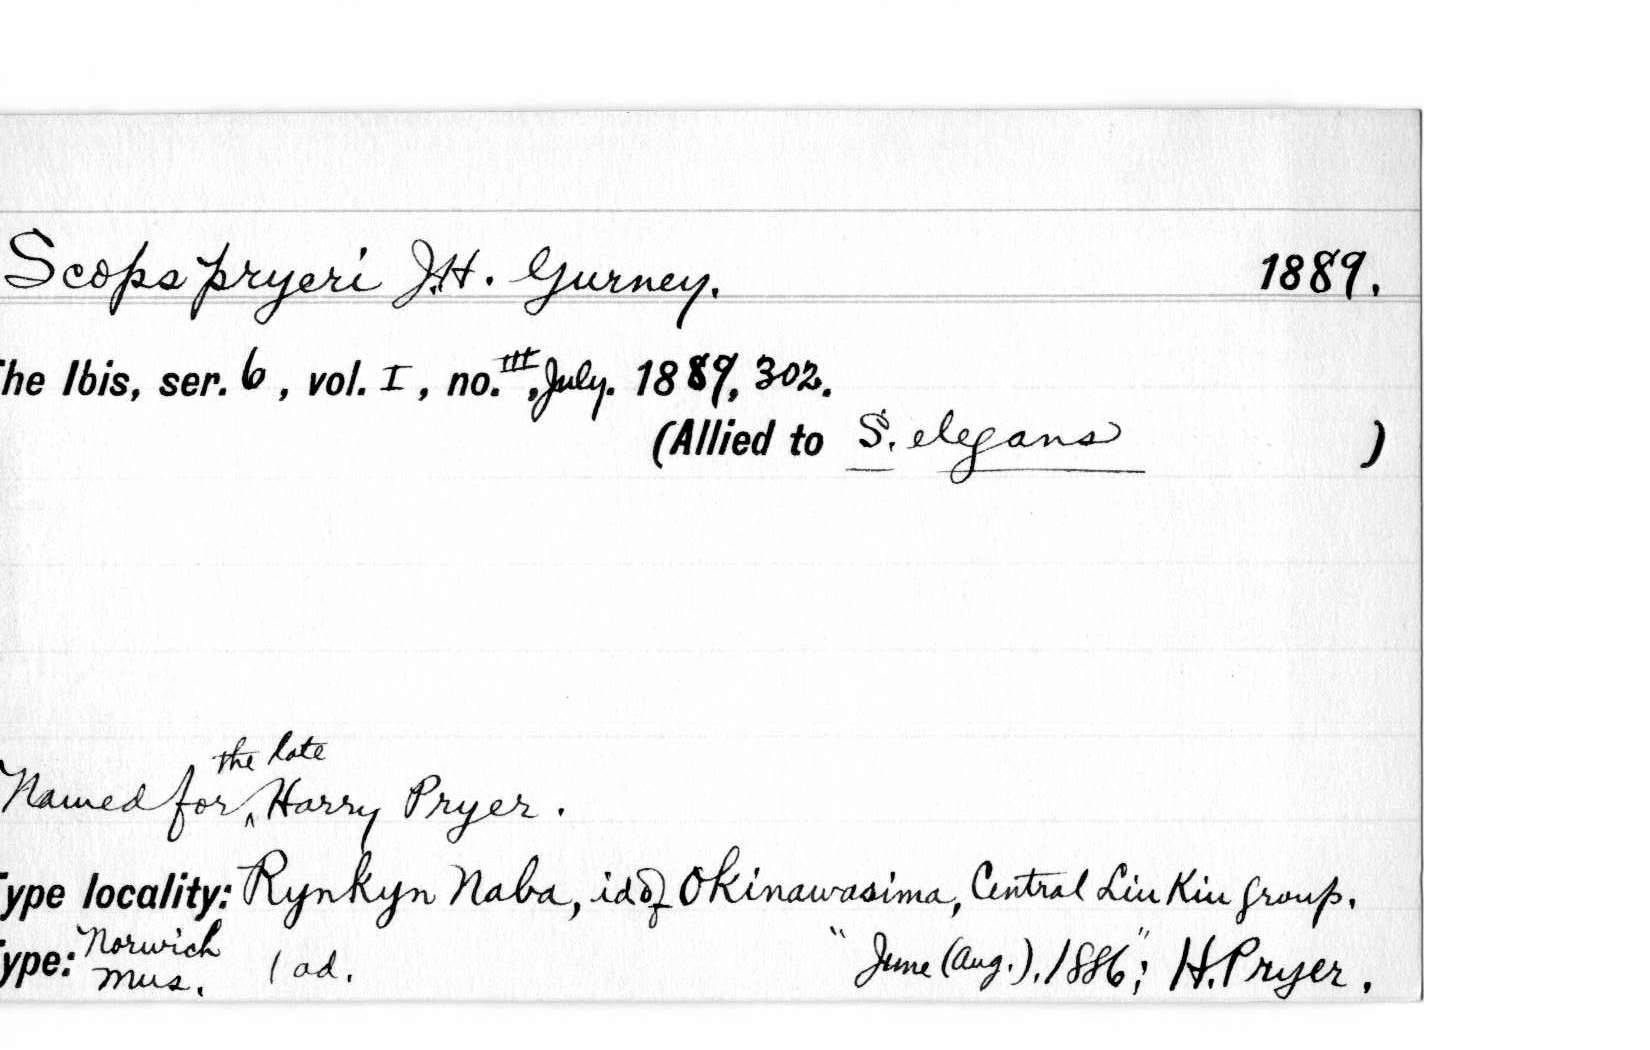 Scops pryeri J.H. Gurney. 1889.
The Ibis, ser. 6, vol. I, no. III, July. 1889, 302.
(Allied to S. elegans )
Named for the late Harry Pryer.
Type locality: Rynkyn Naba, id of Okinawasima, Central Liu Kiu group.
Type: Norwich Mus. 1 ad. "June (Aug.), 1886"; H. Pryer.